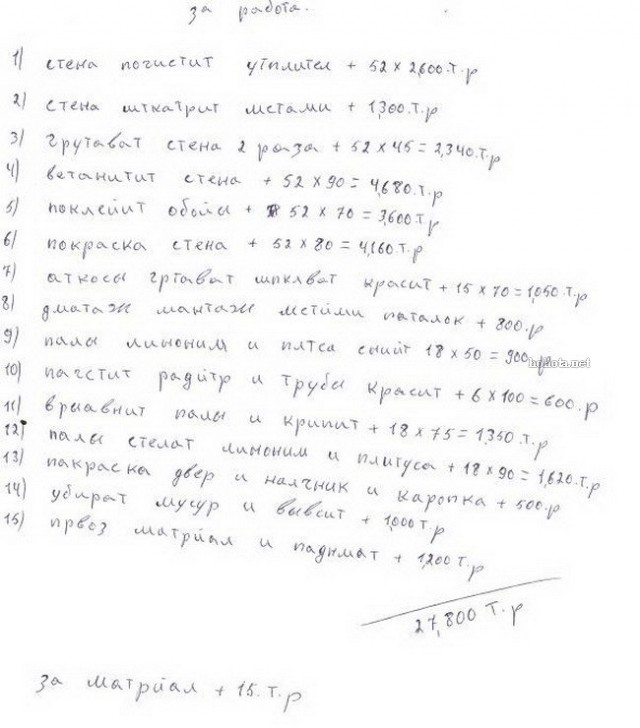 за работа.
1) стена погистит утплител + 52 х 2,600.т.р
2) стена шткатрит местами + 1,300.т.р
3) грутават стена 2 раза + 52 х 45 = 2,340.т.р
4) ветанитит стена + 52 х 90 = 4,680.т.р
5) поклейит обойы + 52 х 70 = 3,600 т р
6) покраска стена + 52 х 80 = 4,160.т.р
7) аткосы гртават шпклват красит + 15 х 70 = 1,050.т.р
8) дматаж мантаж мстйми паталок + 800.р
9) палы линоним и плтса снийт 18 х 50 = 900.р
10) пагстит радйтр и трубы красит + 6 х 100 = 600.р
11) вриавнит палы и крипит + 18 х 75 = 1,350.т.р
12) палы стелат линоним и плитуса + 18 х 90 = 1,620.т.р
13) пакраска двер и налчник и каропка + 500.р
14) убират мусур и вывсит + 1,000 т.р
15) првоз матрйал и паднмат + 1,200 т.р
27,800 т.р
за матрйал + 15.т.р